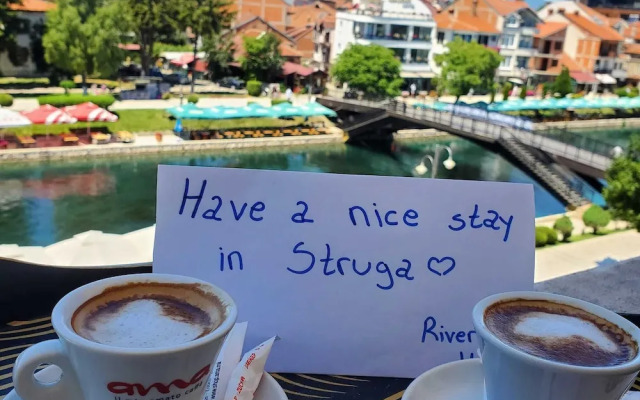 Have a nice stay
in Struga ♡
River
ama